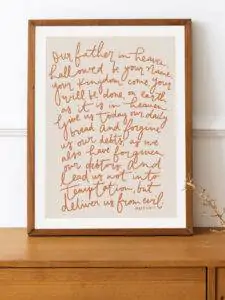 Our father in heaven,
hallowed be your name,
your kingdom come, your
will be done, on earth
as it is in heaven
Give us today our daily
bread and forgive
us our debts, as we
also have forgiven
our debtors. And
lead us not into
temptation, but
deliver us from evil.